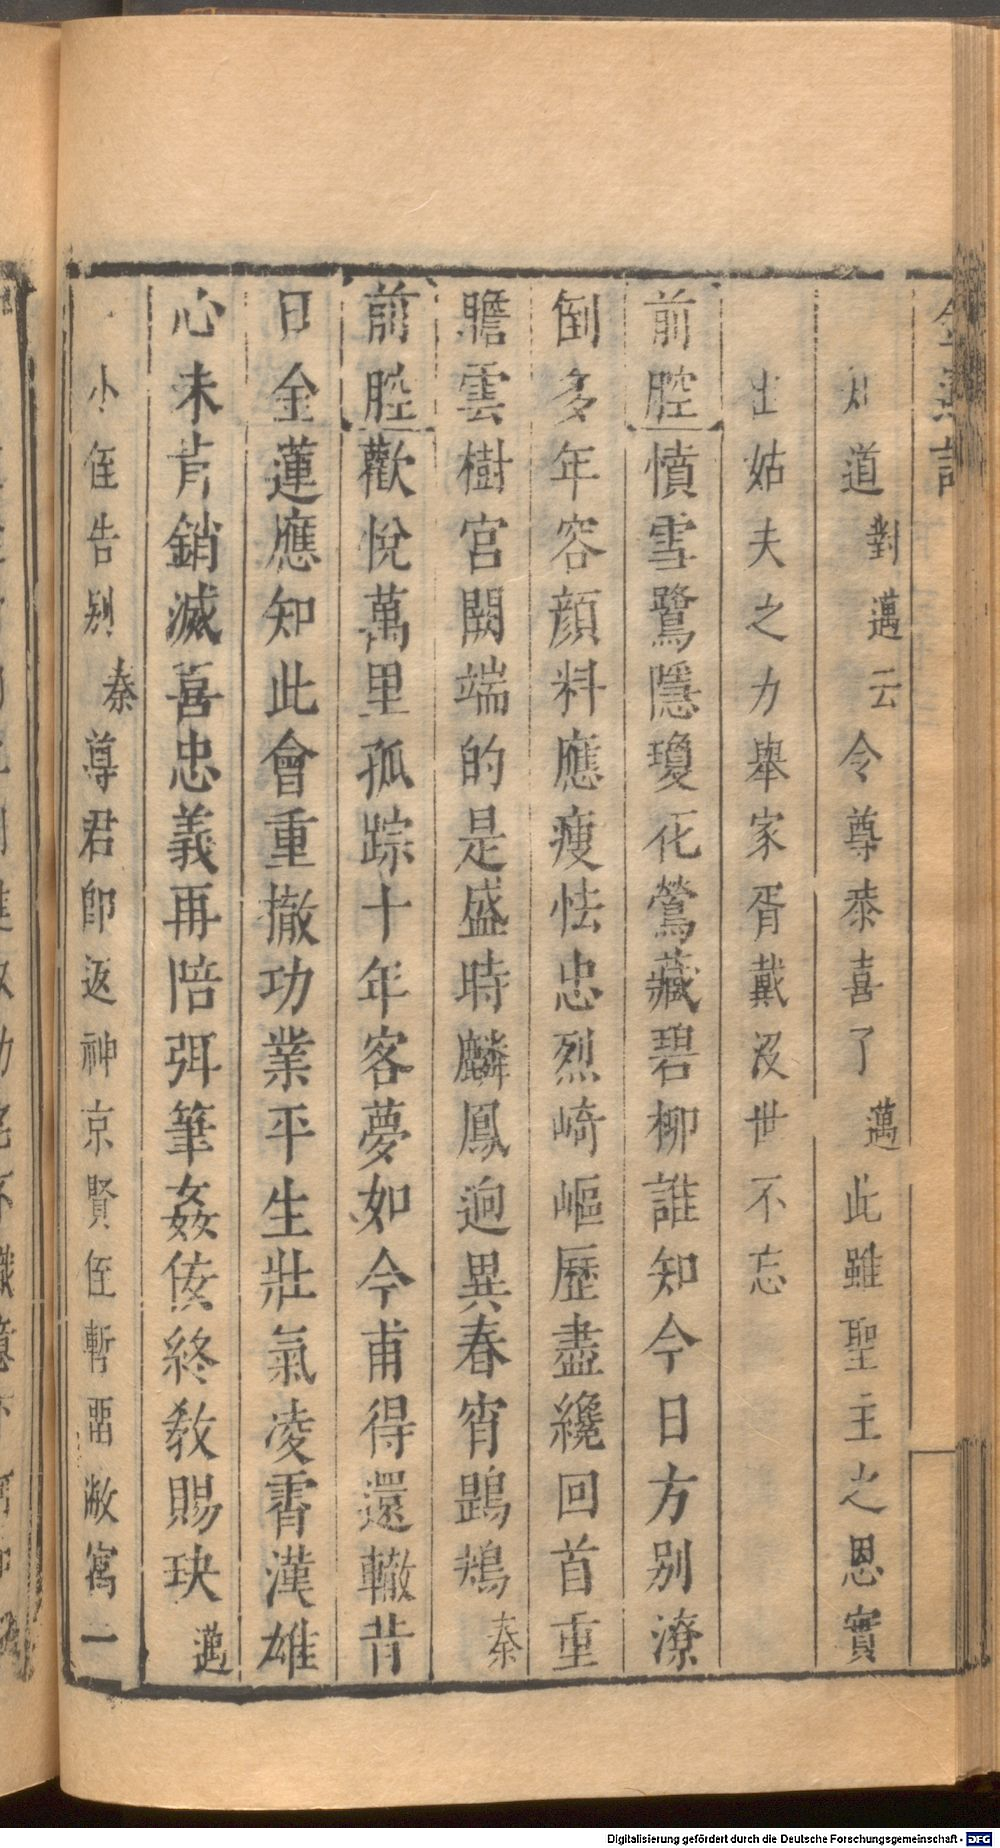 知道對邁云令尊泰喜了邁此雖聖主之恩實
出姑夫之力舉家胥戴沒世不忘
前腔憤雪鷺隱瓊花鶯藏碧柳誰知今日方别潦
倒多年容顔料應瘦怯忠烈崎嶇歷盡纔回首重
瞻雲樹宮闕端的是盛時麟鳳逈異春宵鵾鴂秦
前腔歡悅萬里孤踪十年客夢如今甫得還轍昔
日金蓮應知此會重撤功業平生壯氣凌霄漢雄
心未肯銷滅喜忠義再陪弭筆姦侫終教賜玦邁
小侄告别秦尊君卽返神京賢侄暫畱敝寓一
Digitalisierung gefördert durch die Deutsche Forschungsgemeinschaft - DFG